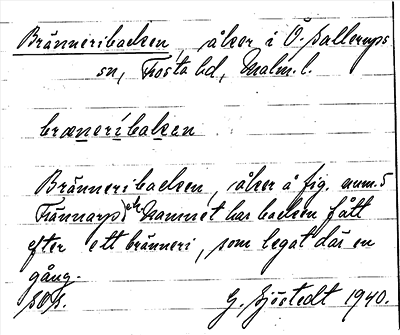 Bränneribacken, åker i Ö. Sallerups
sn, Frosta hd, Malm. l.
bræneribaken
Bränneribacken, åker å fig. num. 5
Namnet har backen fått
efter ett bränneri, som legat där en
gång.
G. Sjöstedt 1940.